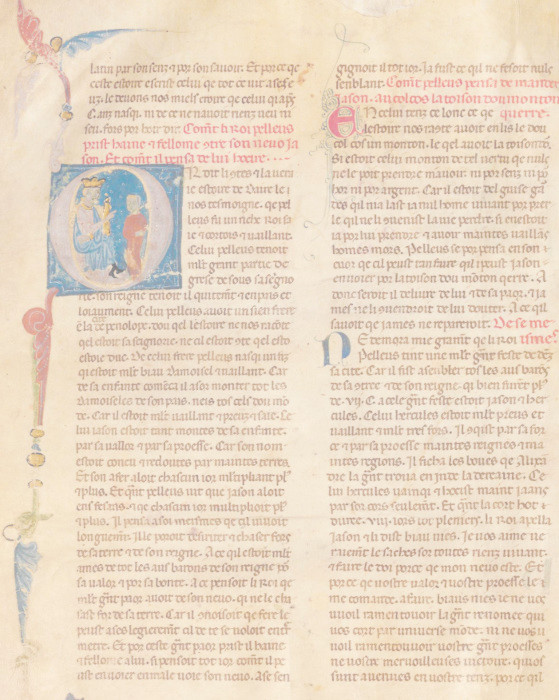 latin par son senz ⁊ por son savoir. Et por ce qe
ceste estoire escrist celui qe tot ce vit ases e
oi. le devons nos miels croire qe celui qi apres
Cant nasqi. ni de ce ne savoit nienz neu ni
sen. fors por hoir dir. Coment li Roi pelleus
prist haine ⁊ fellonie contre son nevo Ja
son. Et coment il pensa de lui
Roit listres ⁊ la veraie
estoire de Daire le
nos tesmoigne. qe pel
leus fu un riche Roi sa
ge ⁊ cortois ⁊ vaillant.
Celui pelleus tenoit
mlt grant partie de
grese de sous sa segno
rie. son reigne tenoit il quitement ⁊ en pais et
loiaument. Celui pelleus. avoit un sien frere
en la cite penolope. dou qel lestoire ne nos raconte
qel estoit sa segnorie. ne en il estoit ne qel esto
estoit duc. De celui frere pelleus nasqui un fiz
qi estoit mlt biau Damoisel ⁊ vaillant. Car
de sa enfance comenca il a sormonter tot les
Damoiseles de son pais. neis tos cels dou mon
de. Car il estoit mlt vaillant ⁊ preuz ⁊ saie. Ce
lui iason estoit tant montes de sa enfance.
par sa vallor ⁊ par sa proesse. Car son nom
estoit coneu ⁊ redoutes par maintes terres.
Et son afer aloit chascun ior mltepliant plus
⁊ plus. Et qant pelleus vit que Jason aloit
ensi ⁊ qe chascun ior multiplioit plus
⁊ plus. Il pensa a soi meismes qe cil
longuement. Il le poroit ⁊ chaser fore
de sa terre ⁊ de son reigne. A ce qil estoit mlt
ames de tot les aus barons de son reigne por
sa valor ⁊ por sa bonte. A ce pensoit li Roi qe
mlt grant paor avoit de son nevo. qi ne le cha
sast fors de sa terre. Car il conoisoit qe fere le
peust ases legierement cil de ce se voloit entre
metre. Et por ceste grant paor prist il haine
⁊ fellonie a lui. si pensoit tot ior coment il pe
ust envoier en male voie son nevo. Ase sen
gignoit il tot ior. Ja fust ce qil ne fesoit nule
semblant. Coment pelleus pensa de mander
Jason. au colcos la toison dou monton
querre.
En celui tenz ce lonc ce qe
lestoire nos raconte avoit en lis le dou
col cos un monton. le qel avoit la toison dor.
Si estoit celui monton de tel vertu qe nule
ne le poit prendre navoir. ni por senz ni por
hor ni por argent. Car il estoit del guise gar
des qil ma last ia nul home vivant por prendre
le qil ne li qenuist la vie perdre. si en estoit
ia por lui prendre ⁊ avoir maintes vaillanz
homes mors. Pelleus se porpensa en son
cuor qe cil peust tant faire qil peust Jason
envoier por la toison dou moton qerre. A
donc seroit il delivre de lui ⁊ de sa paor. ⁊ ja
mes ne li qenvendroit de lui douter. A ce qil
savoit qe james ne repareroit. De se me
isme.
De demora mie grament qe li roi
Pelleus tint une mlt grant feste dedenz
sa cite. Car il fist asenbler tot les aus barons
de sa terre ⁊ de son reigne. qi bien furent plus
de. vij. C. a cele grant feste estoit iason ⁊ her
cules. Celui hercules estoit mlt preus et
vaillant ⁊ mlt tres fors. Il qist par sa for
ce ⁊ par sa proesse maintes reignes ⁊ ma
intes regions. Il ficha les bones qe Alixan
dre la grant trova en inde la deraine. Ce
lui hercules vainqi ⁊ hocist maint jaianz
par son cors seulement. Et qant la cort hot
duree. viij. iors tot pleniere. li Roi apella
Jason ⁊ li dist biau nies. Je vos aime ne
vraiement le saches sor toutes rienz vivant.
⁊ faire le doi porce qe mon nevo este. Et
porce qe vostre valor ⁊ vostre proesse le
me comande. a faire. biaus nies ie ne vos
vuoil ramentovoir la grant renomee qui
vos cort par universe monde. ni ne vos
vuoil ramentovoir vostre grant proesse
ne vostre merveilleuses vertous. quos
sunt avenues en vostre tenz. por ce qil